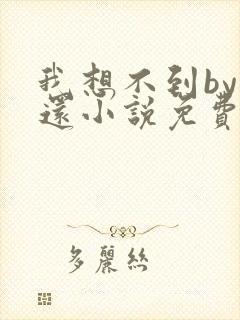 我想不到by
還小說免費
多麗絲